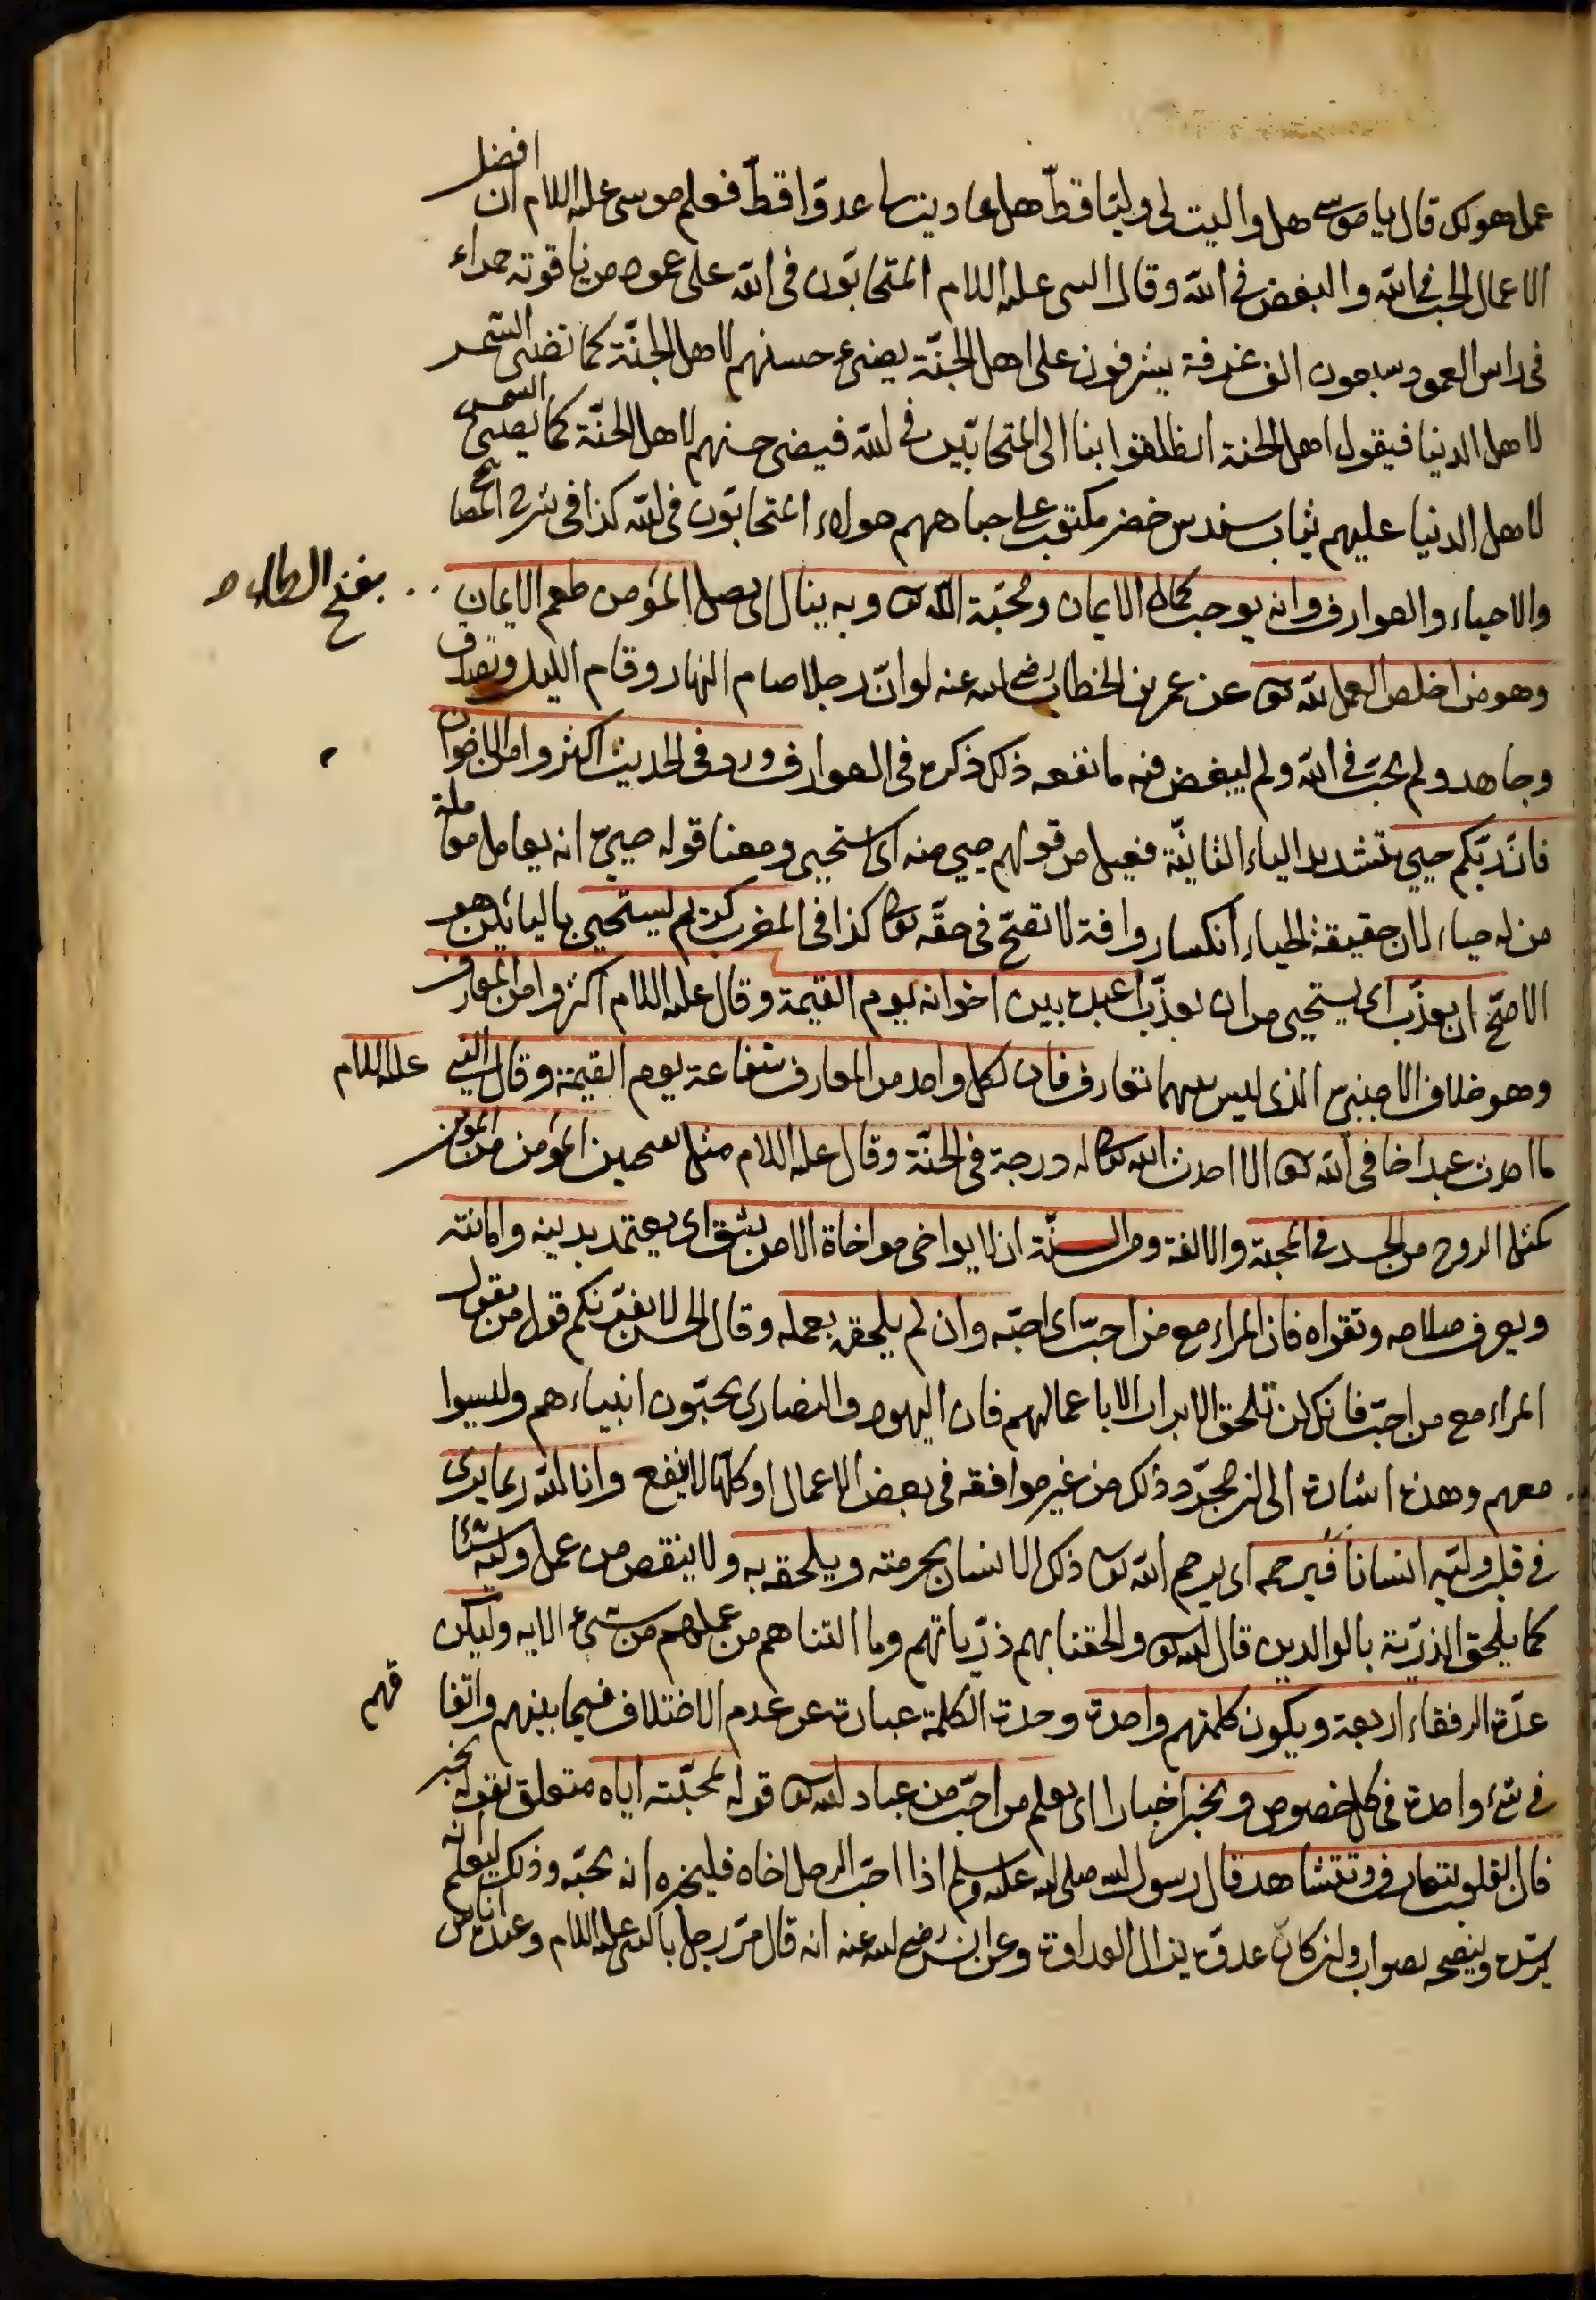 عمل هو لك قال يا موسى هل واليت لى وليّا قطّ هل عاديت لى عدوّا قطّ فعلم موسى عليه السلام ان افضل
الاعمال الحب فى الله والبغض فى الله وقال النبى عليه السلام المتحابّون فى الله على عمود من ياقوتة حمراء
فى راس العمود سبعون الف غرفة يشرفون على اهل الجنّة يضىء حسنهم لاهل الجنّة كما تضىء الشمس
لاهل الدنيا فيقول اهل الجنة انطلقوا بنا الى المتحابّين فى الله فيضئ حسنهم لاهل الجنّة كما يضىء الشمس
لاهل الدنيا عليهم ثياب سندس خضر مكتوب على جباههم هولاء المتحابّون فى الله كذا فى شرح المصابيح
والاحياء والعوارف وانه يوجب كمال الايمان ومحبّة الله تعالى وبه ينال اى يصل المؤمن طعم الايمان بفتح الطاء
وهو من اخلص العمل لله تعالى عن عمر بن الخطاب رضى الله عنه لو انّ رجلا صام النهار وقام الليل وتصدق
وجاهد ولم يحبّ فى الله ولم يبغض فيه ما نفعه ذلك ذكره فى العوارف وورد فى الحديث اكثروا من الاخوان
فانّ ربّكم حيى بتشديد الياء الثانية فعيل من قولهم حيى منه اى استحيى ومعنا قوله حيىّ انه يعامل معاملة
من له حياء لان حقيقة الحياء انكسار وافة لا تصحّ فى حقّه تعالى كذا فى المغرب كريم يستحيى باليائين هو
الاصّح ان يعذّب اى يستحيى من ان يعذّب عبده بين اخوانه يوم القيمة وقال عليه السلام اكثروا من المعارف
وهو خلاف الاجنبى الذى ليس بينهما تعارف فان لكل واحد من المعارف شفاعة يوم القيمة وقال النبى عليه السلام
ما احدث عبد اخا فى الله تعالى الا احدث الله تعالى له درجة فى الجنّة وقال عليه السلام مثل المؤمن من المؤمن
كمثل الروح من الجسد فى المحبة والالفة ومن السنّة ان لا يواخى مواخاة الا من يثق اى يعتمد بدينه وامانته
ويعرف صلاحه وتقواه فان المراء مع من احبّ اى احبّه وان لم يلحقه بعمله وقال الحسن لا يغرّنكم قول من يقول
المراء مع من احبّ فانك لن تلحق الابرار الا باعمالهم فان اليهود والنصارى يحبّون انبياءهم وليسوا
معهم وهذه اشارة الى ان مجرّد ذلك من غير موافقة فى بعض الاعمال او كلّها لا ينفع وانّ الله ربما يرى
فى قلب وليّه انسانا فيرحمه اى يرحم الله تعالى ذلك الانسان بحرمته ويلحقه به ولا ينقص من عمل وليّه شيئا
كما يلحق الذرّية بالوالدين قال الله تعالى والحقنا بهم ذرّياتهم وما التناهم من عملهم من شىء الايه وليكن
عدّة الرفقاء اربعة ويكون كلمتهم واحدة وحدة الكلمة عبارة عن عدم الاختلاف فيما بينهم واتفاقهم
فى شىء واحدة فى كل خصوص ويخبر اخبارا اى يعلم من احبّ من عباد الله تعالى قوله لمحبّته اياه متعلق بقوله يخبر
فان القلوب تتعارف وتتشاهد قال رسول الله صلى الله عليه وسلم اذا احبّ الرجل اخاه فليخبره انه يحبّه وذلك ليعلم انه
يرشده وينصحه بصواب ولئن كان عدوّه يزال العداوة وعن انس رضى الله عنه انه قال مرّ رجل بالنبى عليه السلام وعنده اناس